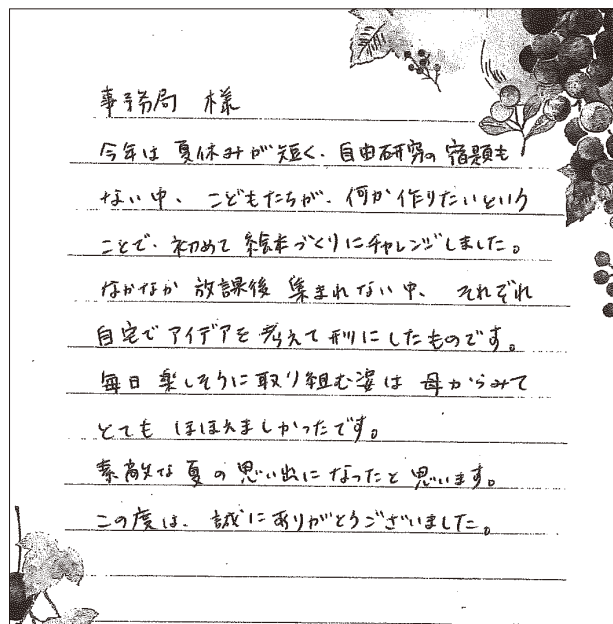 事務局 様
今年は 夏休みが短く、自由研究の宿題も
ない中、こどもたちが、何か作りたいという
ことで、初めて 絵本づくりにチャレンジしました。
なかなか 放課後 集まれない中、それぞれ
自宅でアイデアを考えて形にしたものです。
毎日 楽しそうに取り組む姿は 母からみて
とても ほほえましかったです。
素敵な夏の思い出になったと思います。
この度は、誠にありがとうございました。